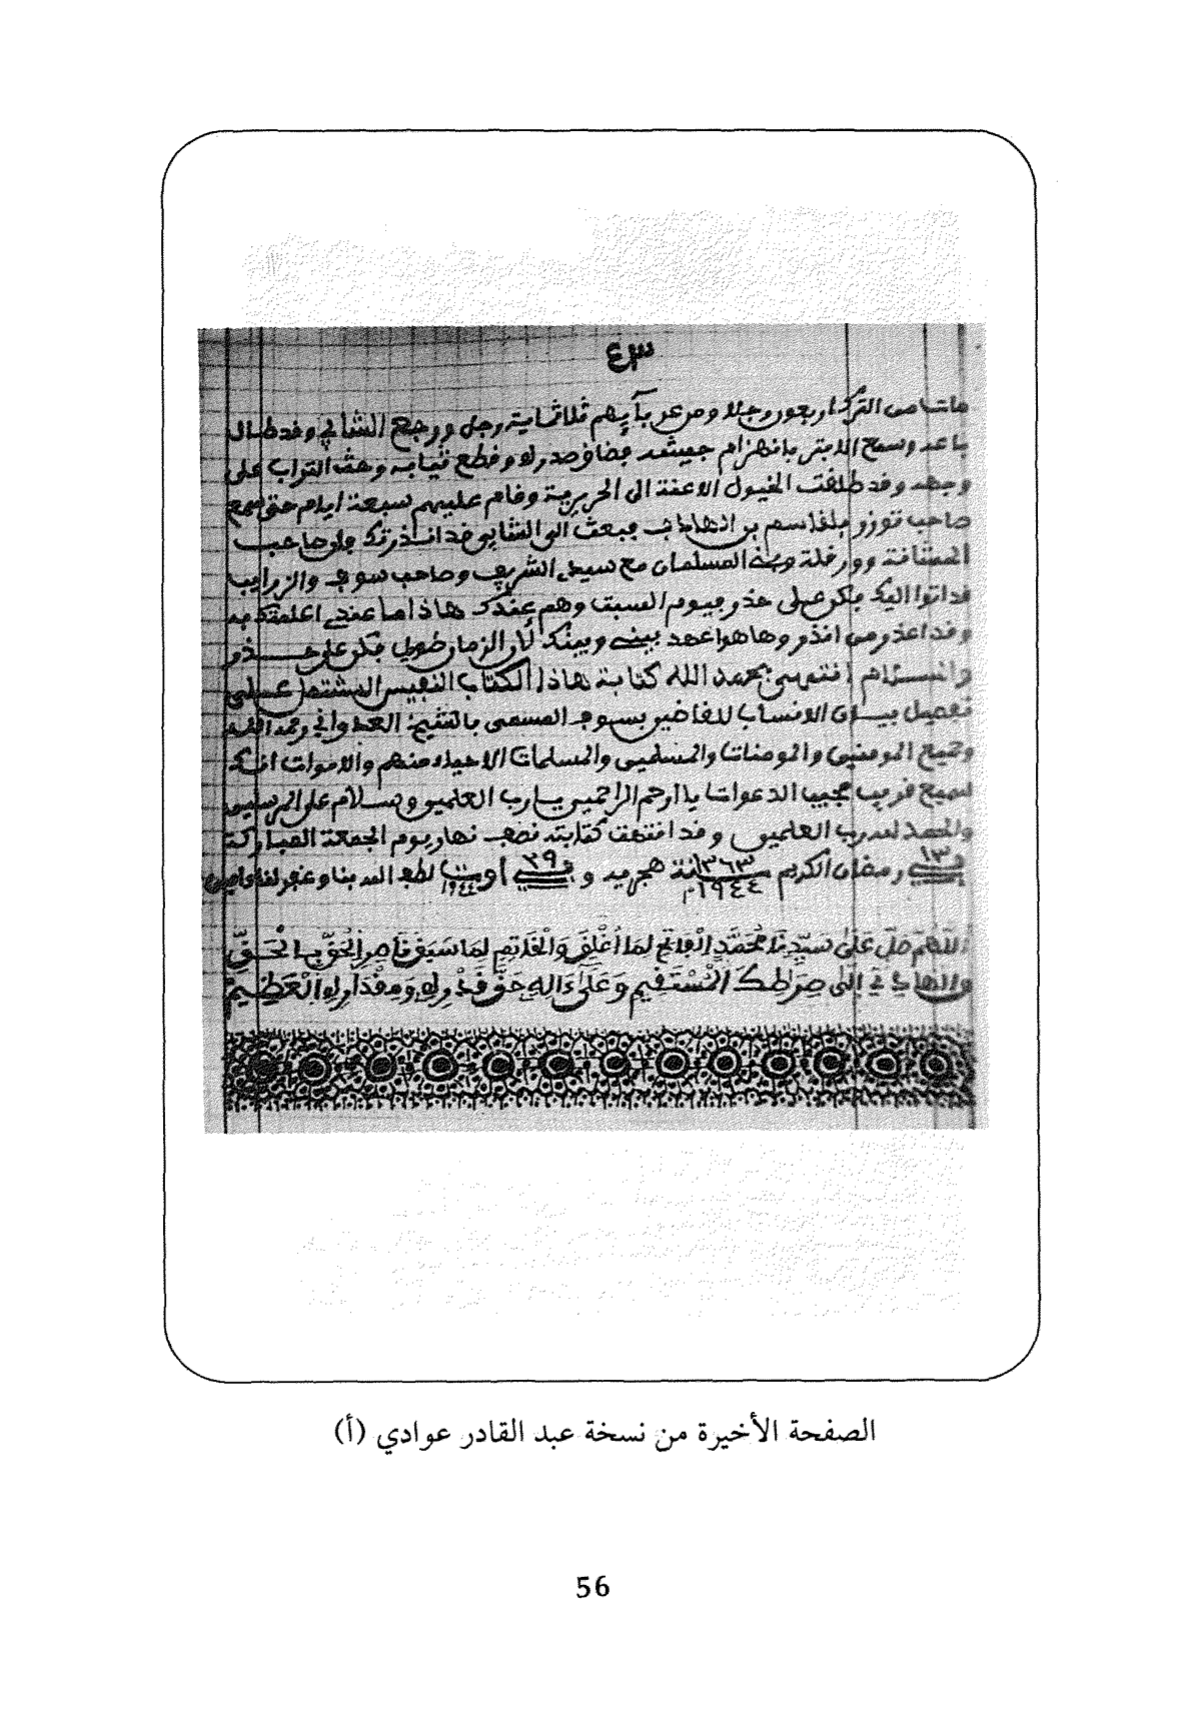 ٤٣
مات من الترك اربعون رجلا ومن عربآيهم ثلاثماية رجل ورجع الشابي وقد طال
باعه وسمع الابتر بانهزام جيشه فضاق صدره وقطع ثيابه وحث التراب على
وجهه وقد طلقت الخيول الاعنة الى الحريرية وقام عليهم سبعة ايام حتى سمع
صاحب توزر بلقاسم بن الهادف فبعث الى الشابي قد انذرتك صاحب
المتنانة وورغلة وبني المسلمان مع سيطى الشريف وصاحب سوف والزرايب
قد اتوا اليك فكن على حذر فيوم السبت وهم عندك هاذا ما عندي اعلمتك به
وقد اعذر من انذر وها هوا عهد بيني وبينك لأن الزمان طويل فكن على حذر
والسلام انتهى بحمد الله كتابة هاذا الكتاب النفيس المشتمل على
تفصيل بيان الانساب للقاضين بسوف المسمى بالشيخ العدواني رحمه الله
وجميع المومنين والمومنات والمسلمين والمسلمات الاحياء منهم والاموات انك
سميع قريب مجيب الدعوات يا ارحم الراحمين يا رب العلمين وسلام على المرسلين
والحمد لله رب العلمين وقد انتهت كتابته نصف نهار يوم الجمعة المباركة
في ١٣ رمضان الكريم سنة ١٣٦٣ هجريه و في ٢٩ أوت ١٩٤٤ لطف الله بنا وغفر لنا ءامين
١٩٤٤م
اللهم صَلِّ عَلَى سَيِّدِنَا مُحَمَّدٍ الْفَاتِحِ لِمَا أُغْلِقَ وَالْخَاتِمِ لِمَا سَبَقَ نَاصِرِ الْحَقِّ بِالْحَقِّ
والهادي إلى صِرَاطِكَ الْمُسْتَقِيمِ وَعَلَى ءَالِهِ حَقَّ قَدْرِهِ وَمِقْدَارِهِ الْعَظِيمِ
الصفحة الأخيرة من نسخة عبد القادر عوادي (أ)
56